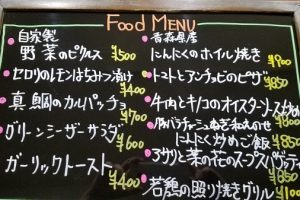 Food MENU
自家製
野菜のピクルス ¥500
セロリのレモンはちみつ漬け ¥400
真鯛のカルパッチョ ¥700
グリーンシーザーサラダ ¥600
ガーリックトースト ¥400
青森県産
にんにくのホイル焼き ¥900
トマトとアンチョビのピザ ¥850
牛肉とキノコのオイスターソース炒め
豚バラ ねぎ和えのせ ¥800
にんにく炒めご飯 ¥850
アサリと菜の花のスープスパゲティ ¥850
若鶏の照り焼きグリル ¥1,100